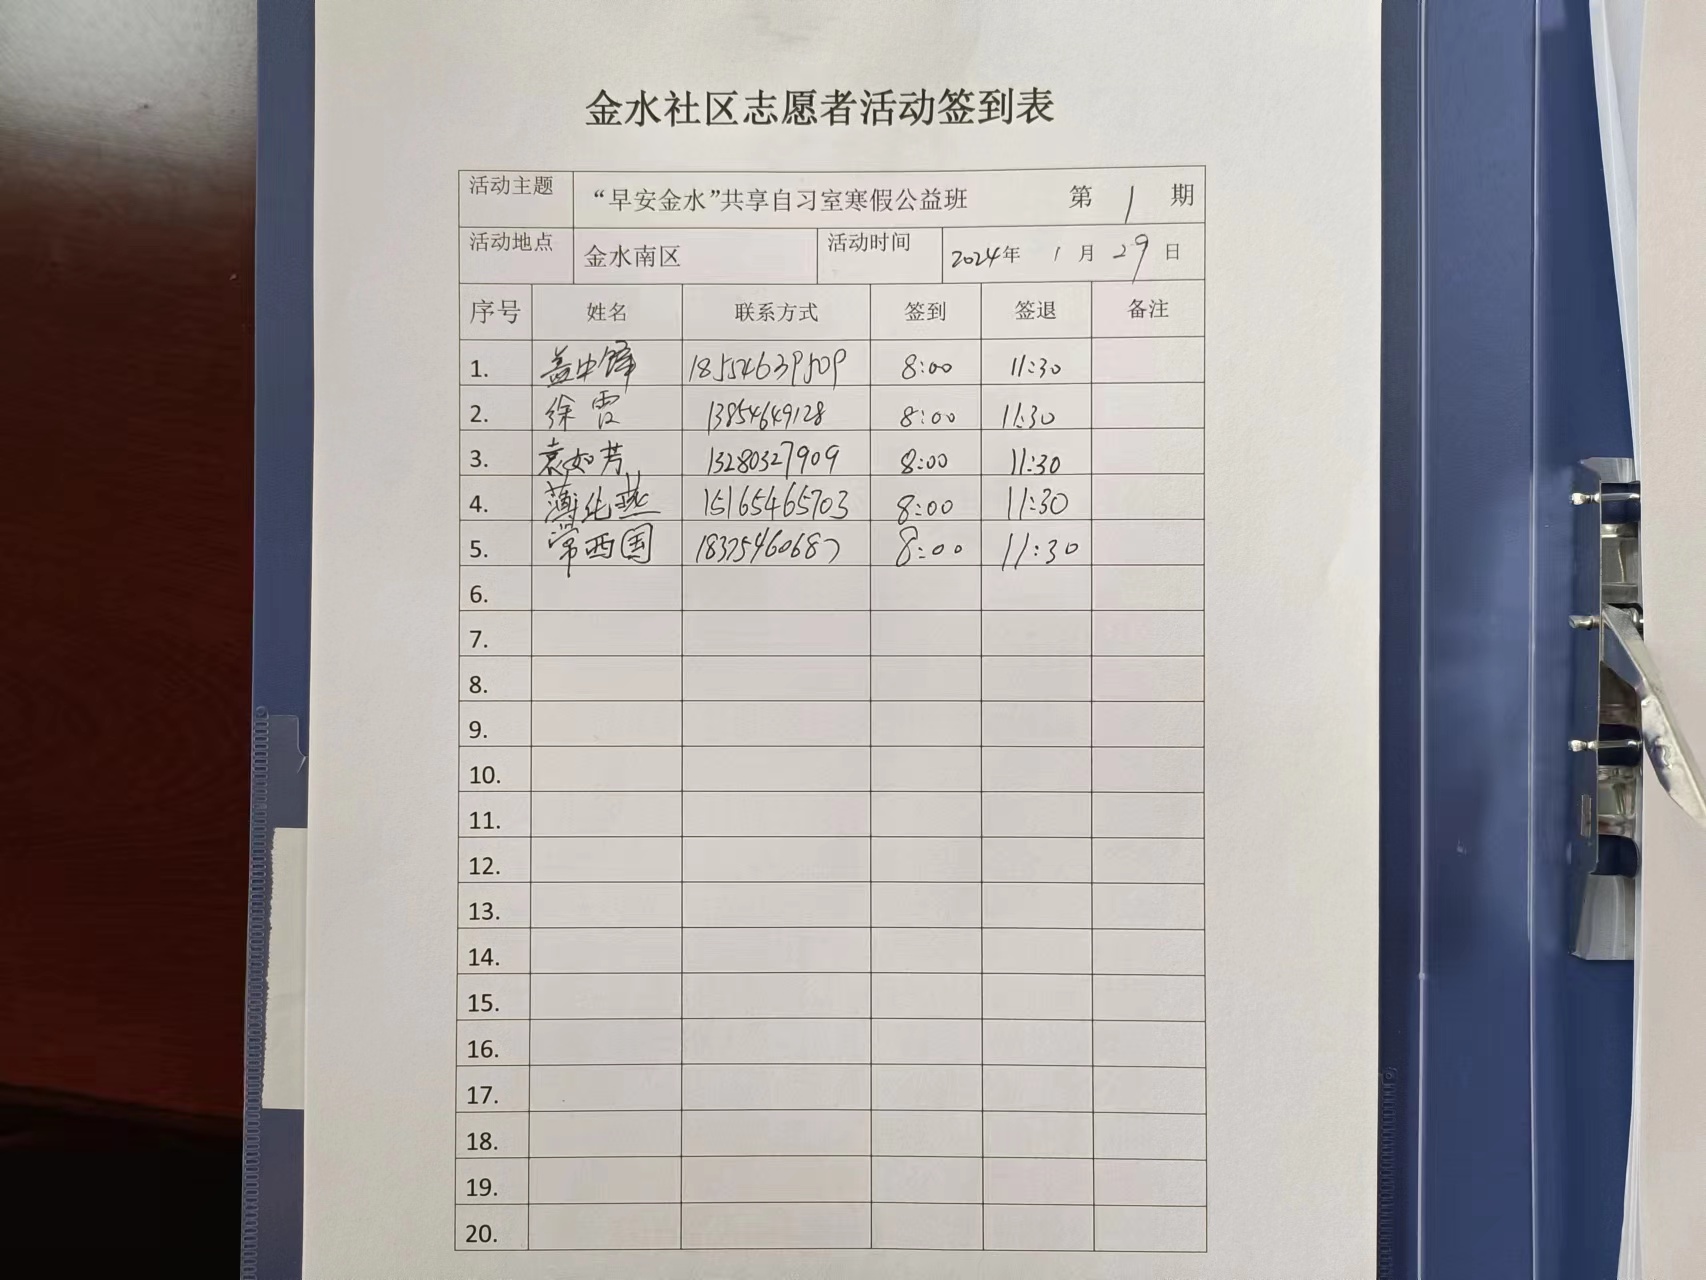 金水社区志愿者活动签到表
活动主题 “早安金水”共享自习室寒假公益班 第 1 期
活动地点 金水南区 活动时间 2024年 1月 29日
序号 姓名 联系方式 签到 签退 备注
1. 盖中锋 18554639509 8:00 11:30
2. 徐霞 13854649128 8:00 11:30
3. 袁如芳 13280327909 8:00 11:30
4. 薄化燕 15165465703 8:00 11:30
5. 常西国 18325460687 8:00 11:30
6.
7.
8.
9.
10.
11.
12.
13.
14.
15.
16.
17.
18.
19.
20.